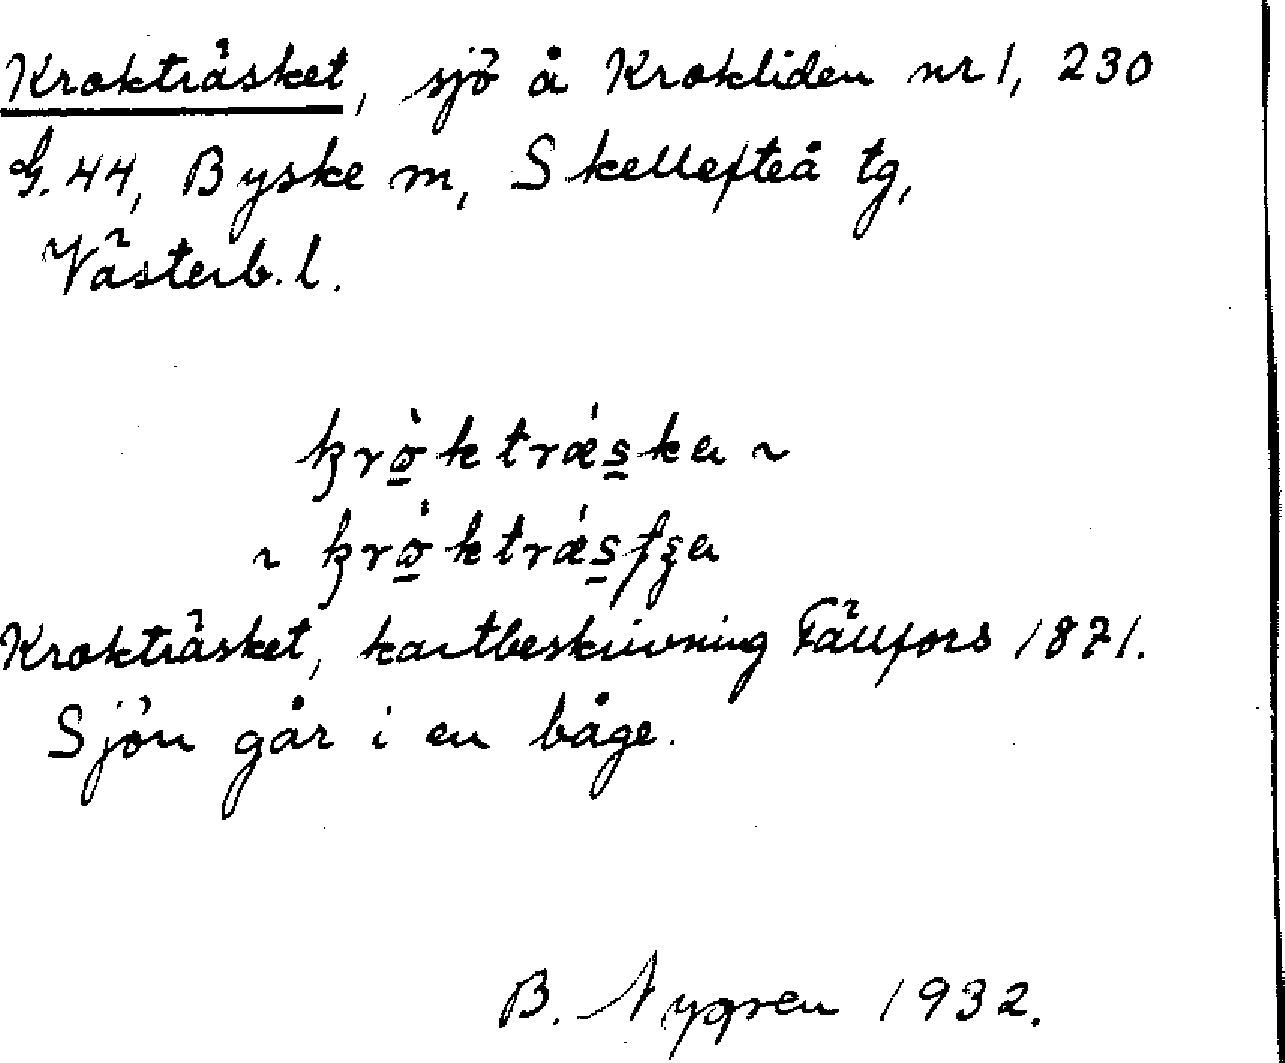 Krokträsket, sjö å Krokliden nr 1, 230
G. 44, Byske m, Skellefteå tg,
Västerb. l.
kròkträ́ska ~
~ kròkträ́sʃʒa
Krokträsket, kartbeskrivning Fällfors 1871.
Sjön går i en båge.
B. Nygren 1932.